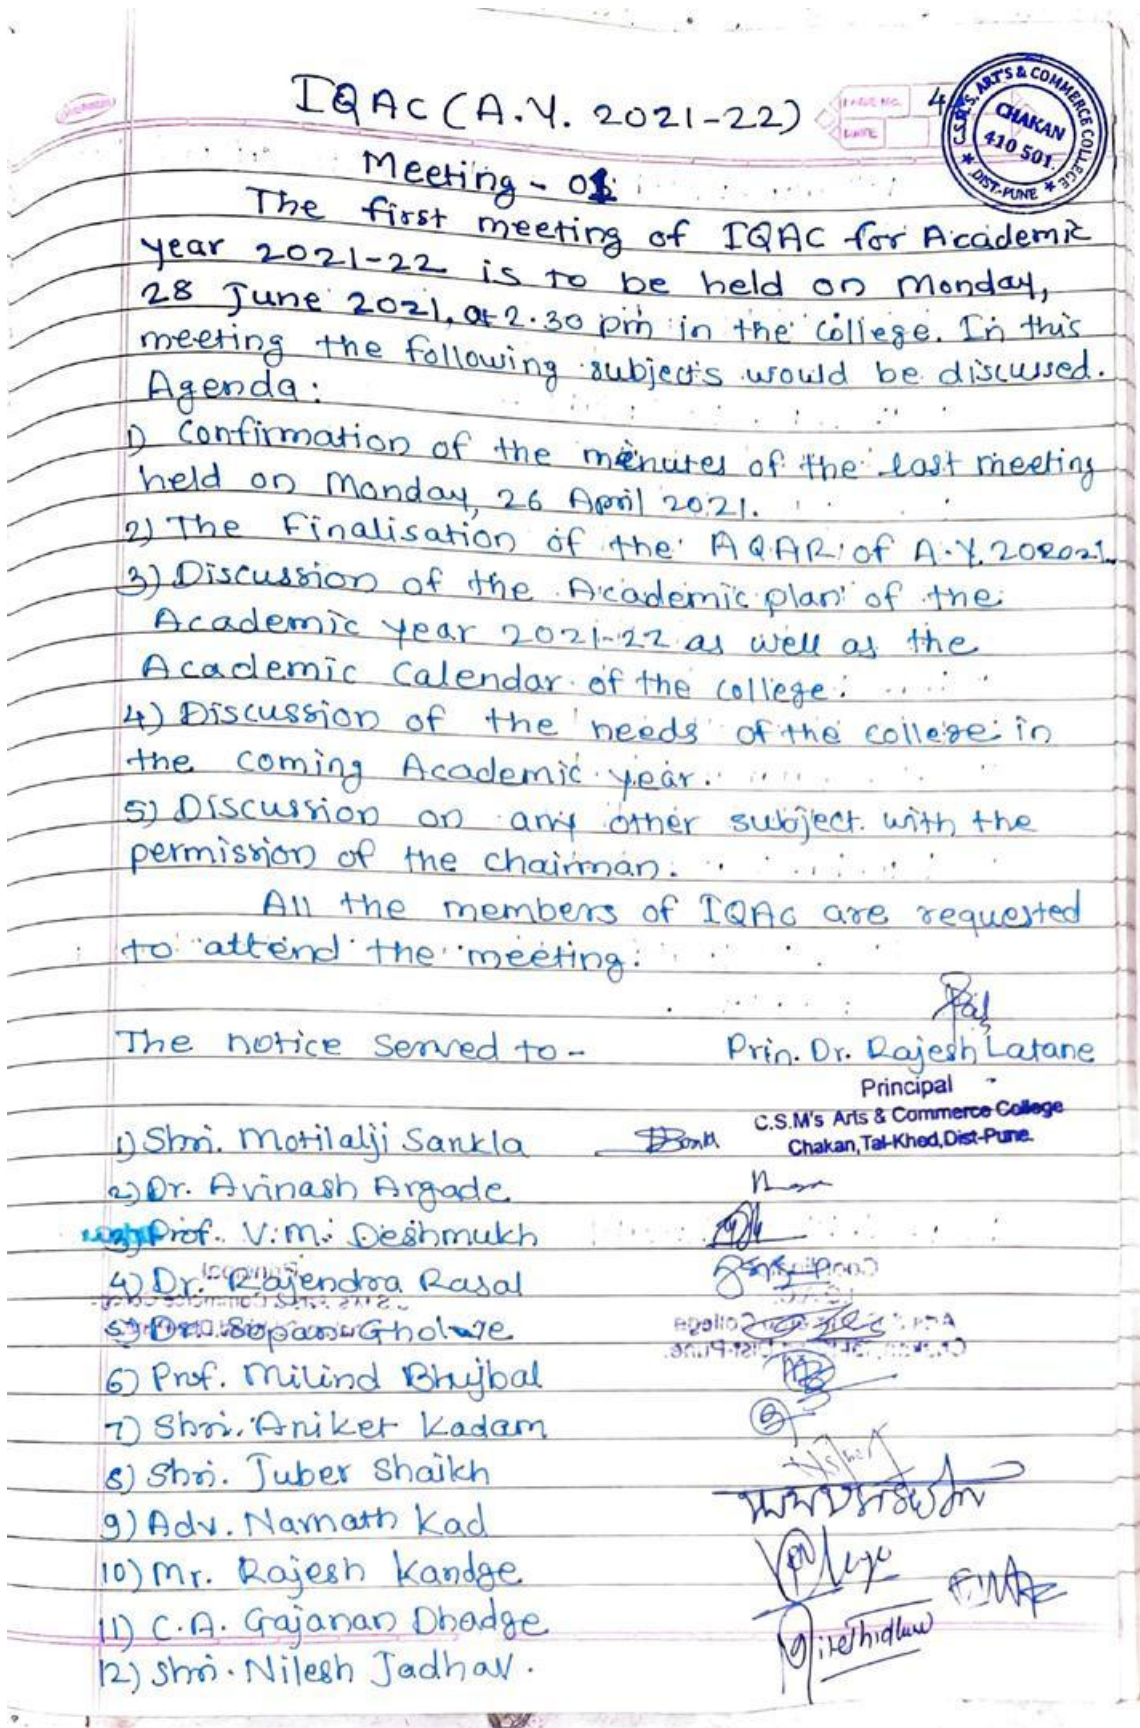 IQAC (A.Y. 2021-22)
PAGE NO. 4
DATE
C.S.M'S. ARTS & COMMERCE COLLEGE
CHAKAN
410 501.
* DIST.-PUNE *
Meeting - 01
The first meeting of IQAC for Academic
year 2021-22 is to be held on Monday,
28 June 2021, at 2.30 pm in the college. In this
meeting the following subjects would be discussed.
Agenda:
1) Confirmation of the minutes of the last meeting
held on Monday, 26 April 2021.
2) The Finalisation of the AQAR of A.Y. 202021
3) Discussion of the Academic plan of the
Academic year 2021-22 as well as the
Academic Calendar of the college.
4) Discussion of the needs of the college in
the coming Academic year.
5) Discussion on any other subject with the
permission of the chairman.
All the members of IQAC are requested
to attend the meeting.
The notice served to - Prin. Dr. Rajesh Latane
Principal
C.S.M's Arts & Commerce College
Chakan, Tal-Khed, Dist-Pune.
1) Shri. Motilalji Sankla
2) Dr. Avinash Argade
3) Prof. V.M. Deshmukh
4) Dr. Rajendra Rasal
5) Dr. Sopan Gholve
6) Prof. Milind Bhujbal
7) Shri. Aniket Kadam
8) Shri. Juber Shaikh
9) Adv. Narnath Kad
10) Mr. Rajesh Kandge
11) C.A. Gajanan Dhadge
12) Shri. Nilesh Jadhav.